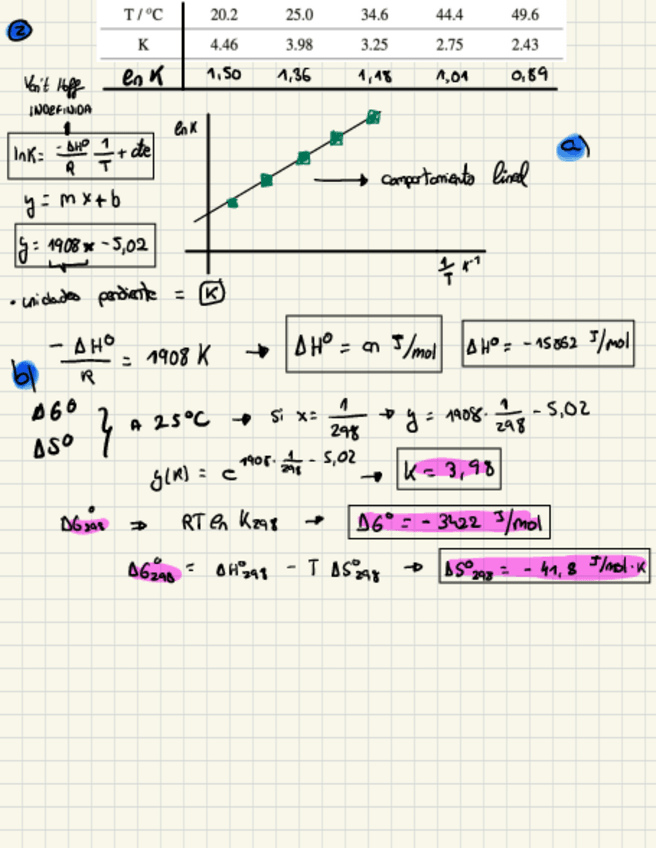 2
T / °C 20.2 25.0 34.6 44.4 49.6
K 4.46 3.98 3.25 2.75 2.43
ln K 1,50 1,36 1,18 1,01 0,89
Van't Hoff
INDEFINIDA
lnK = -ΔH°/R 1/T + cte
y = mx+b
y = 1908x - 5,02
ln K
a)
comportamiento lineal
1/T K⁻¹
• unidades pendiente = K
-ΔH°/R = 1908 K → ΔH° = en J/mol ΔH° = -15862 J/mol
b)
ΔG°
ΔS° } A 25°C → si x = 1/298 → y = 1908 · 1/298 - 5,02
y(K) = e^(1908 · 1/298 - 5,02) → K = 3,98
ΔG°298 ⇒ RT ln K298 → ΔG° = - 3422 J/mol
ΔG°298 = ΔH°298 - T ΔS°298 → ΔS°298 = - 41,8 J/mol·K